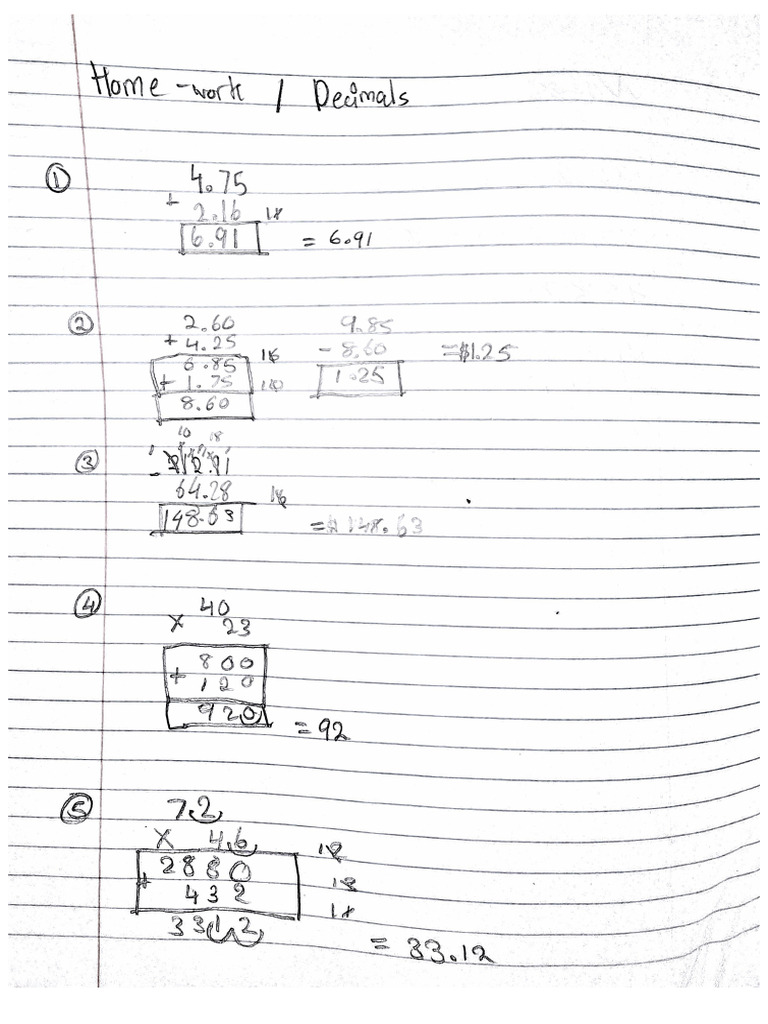 Home-work / Decimals
① 4.75
+ 2.16
6.91 = 6.91
② 2.60 9.85
+ 4.25 - 8.60 = $1.25
6.85 1.25
+ 1.75
8.60
③ 
- 64.28
148.63 = $148.63
④ 40
x 23
800
+ 120
920 = 92
⑤ 7.2
x 4.6
2880
+ 432
3312 = 33.12